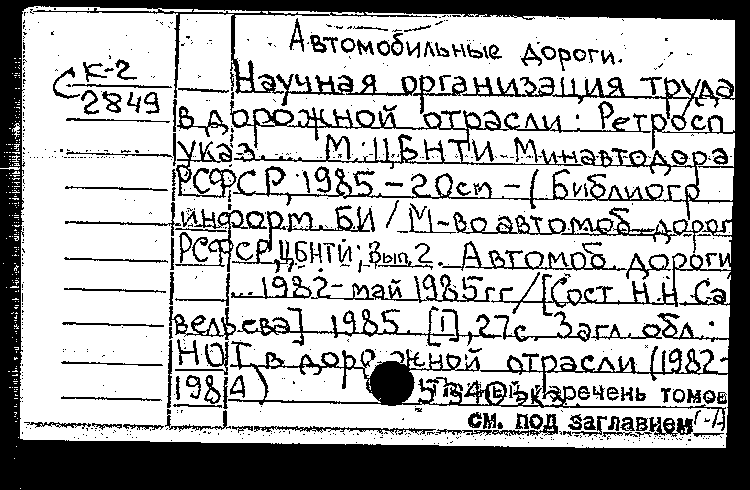 Автомобильные дороги.
С К-2
2849
Научная организация труда
в дорожной отрасли: Ретросп
указ.... М.: ЦБНТИ Минавтодора
РСФСР, 1985. - 20см - (Библиогр
информ. БИ / М-во автомоб. дорог
РСФСР, ЦБНТИ; Вып. 2. Автомоб. дороги
... 1982- май 1985гг / [Сост. Н.Н. Са
вельева] 1985. [1], 27с. Загл. обл.:
НОТ в дорожной отрасли (1982-
1984) р. 534 экз.
перечень томов
см. под заглавием